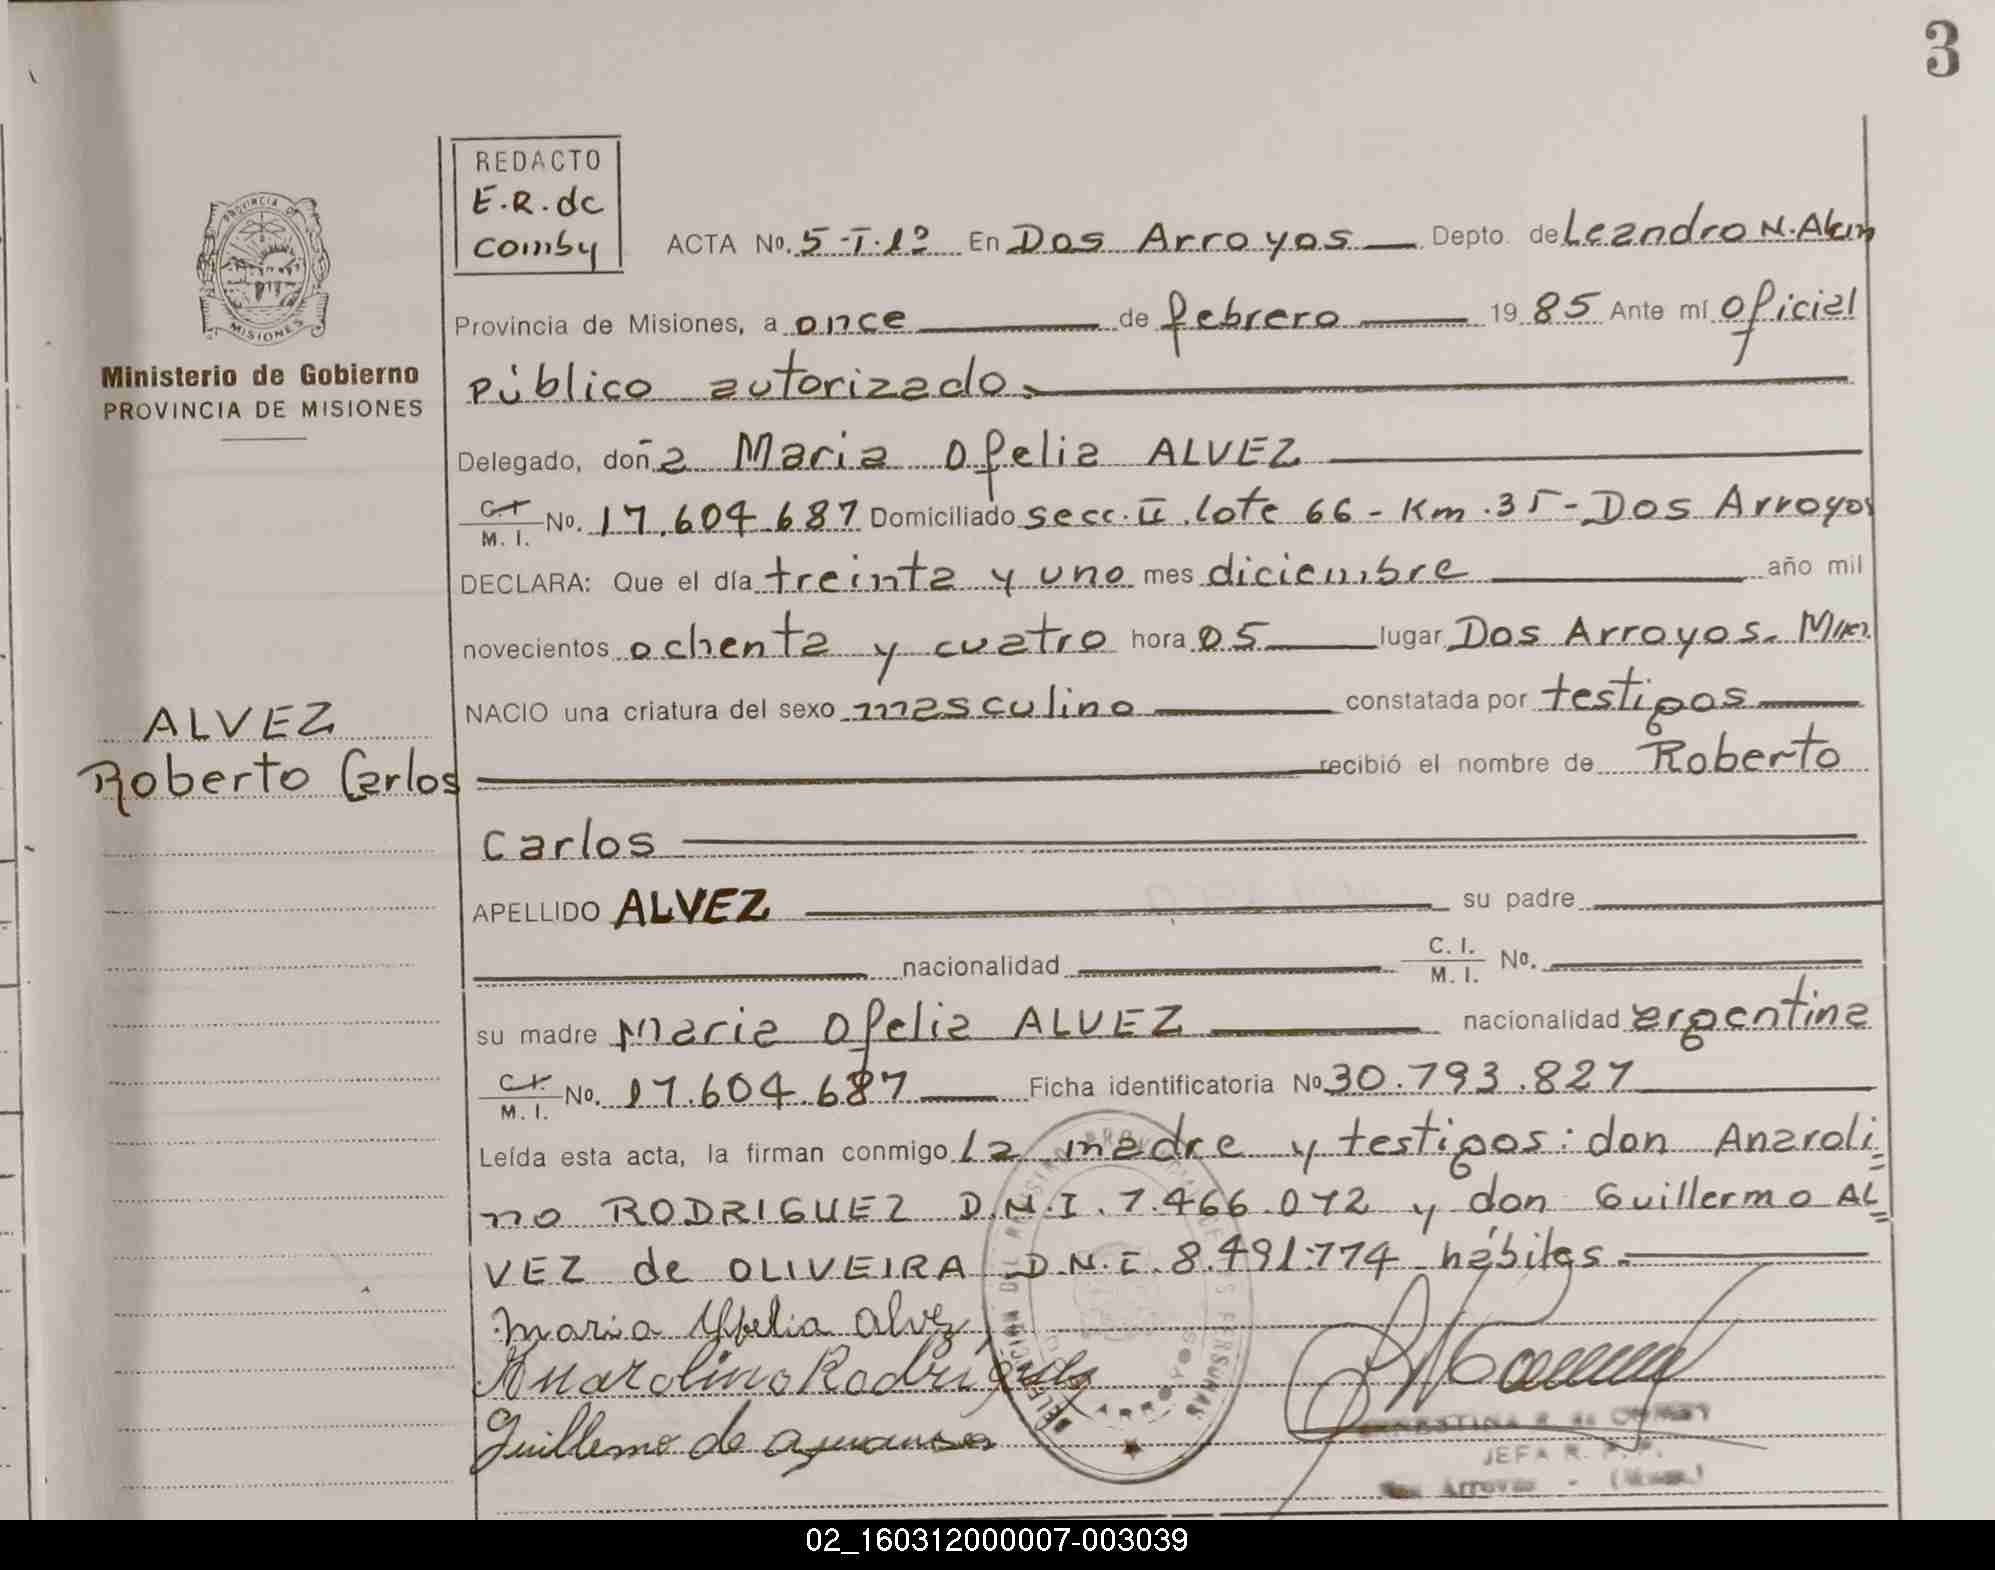 3
REDACTO
E.R.dc
comby
ACTA No. 5-I-1º En Dos Arroyos Depto. de Leandro N. Alem
Provincia de Misiones, a once de febrero 1985 Ante mí oficial
público autorizado.
Ministerio de Gobierno
PROVINCIA DE MISIONES
PROVINCIA DE
MISIONES
Delegado, doña Maria Ofelia ALVEZ
C.I. M. I. No. 17.604.687 Domiciliado secc. II. lote 66 - Km. 35 - Dos Arroyos
DECLARA: Que el día treinta y uno mes diciembre año mil
novecientos ochenta y cuatro hora 05 lugar Dos Arroyos. Mnes.
NACIO una criatura del sexo masculino constatada por testigos
ALVEZ
Roberto Carlos
recibió el nombre de Roberto
Carlos
APELLIDO ALVEZ su padre
nacionalidad C. I. M. I. No.
su madre Maria Ofelia ALVEZ nacionalidad argentina
C.I. M. I. No. 17.604.687 Ficha identificatoria Nº 30.793.827
Leída esta acta, la firman conmigo la madre y testigos: don Anaroli=
no RODRIGUEZ D.N.I. 7.466.072 y don Guillermo AL=
VEZ de OLIVEIRA D.N.I. 8.491.774 hábiles.
Maria Offelia Alvez
Anarolino Rodriguez
Guillermo de
ERNESTINA R. de COMBY
JEFA R. P. P.
Dos Arroyos - (Mnes.)
02_160312000007-003039